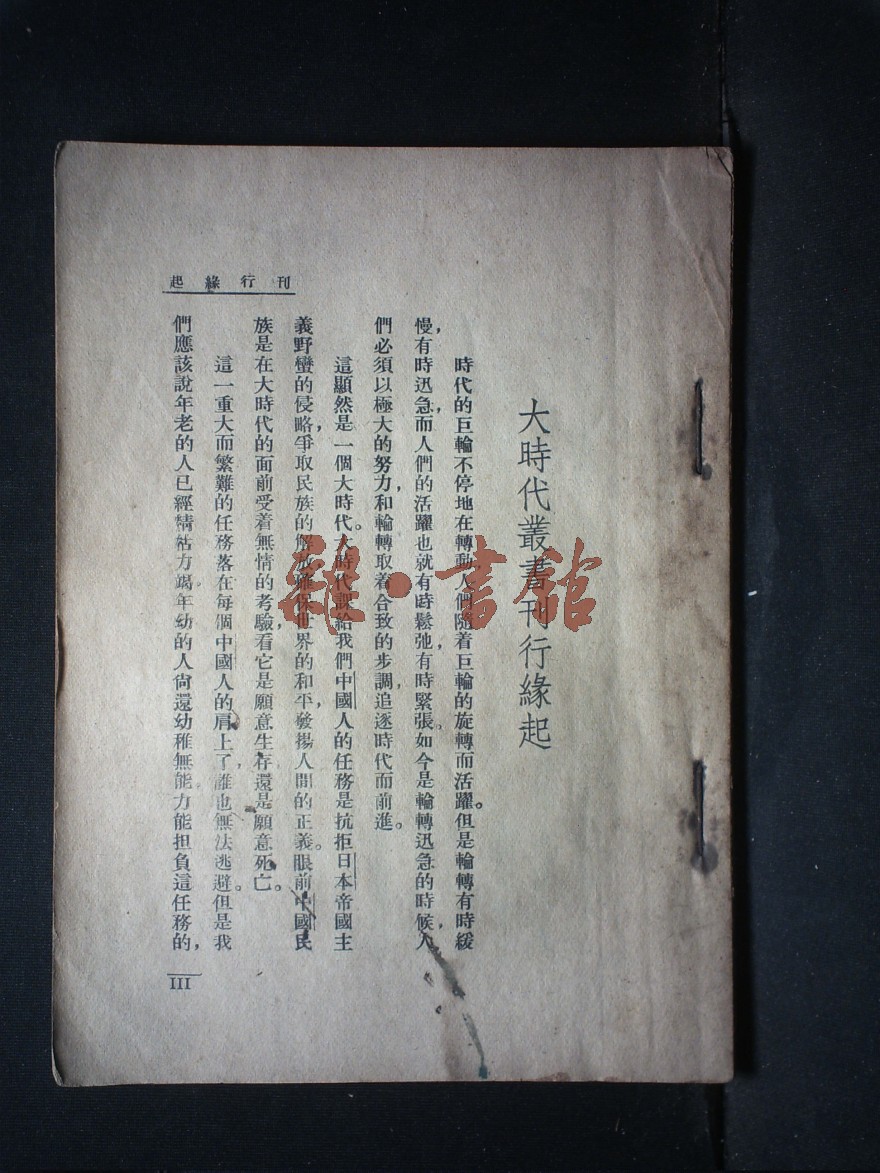 大時代叢書刊行緣起
時代的巨輪不停地在轉動，人們隨着巨輪的旋轉而活躍。但是輪轉有時緩
慢，有時迅急，而人們的活躍也就有時鬆弛，有時緊張。如今是輪轉迅急的時候，人
們必須以極大的努力，和輪轉取着合致的步調，追逐時代而前進。
這顯然是一個大時代。大時代課給我們中國人的任務是抗拒日本帝國主
義野蠻的侵略，爭取民族的解放，確保世界的和平，發揚人間的正義。眼前中國民
族是在大時代的面前受着無情的考驗，看它是願意生存還是願意死亡。
這一重大而繁難的任務落在每個中國人的肩上了，誰也無法逃避。但是我
們應該說年老的人已經精枯力竭，年幼的人尚還幼稚無能，力能担負這任務的，
刊行緣起
III
雜·書館